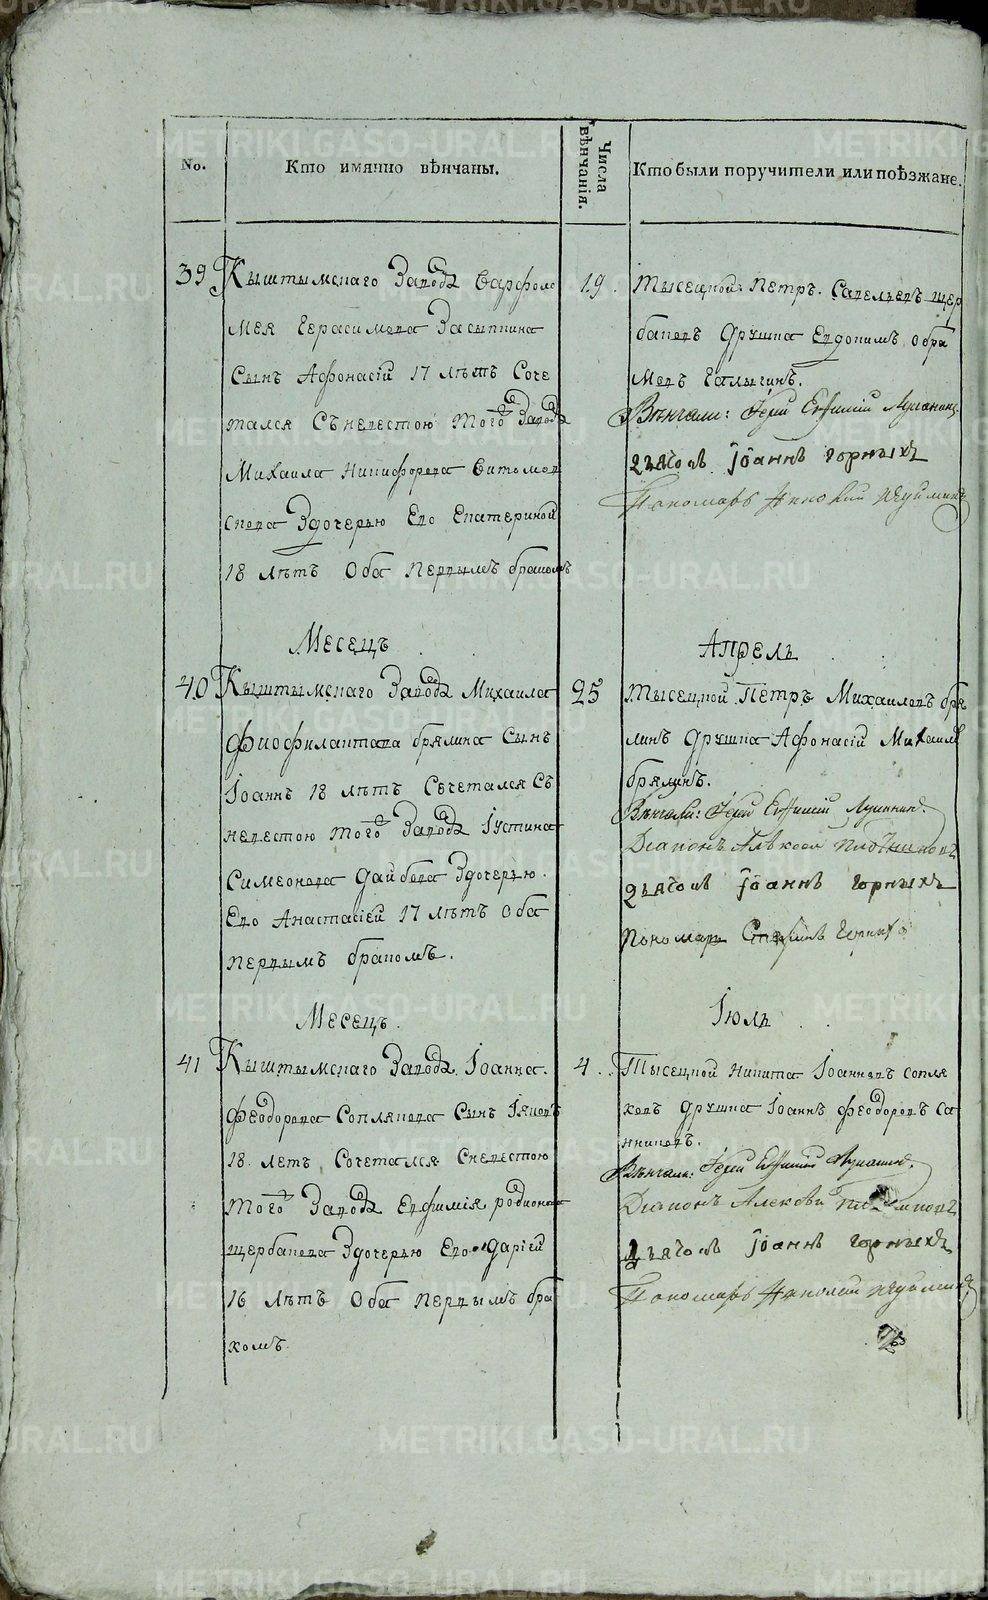 No.
Кто имянно вѣнчаны.
Числа вѣнчанія.
Кто были поручители или поѣзжане.
39 Кыштымскаго Завода Варфоло
мея Герасимова Засыпкина
сынъ Афонасій 17 лѣтъ Соче
тался съ невестою того Завода
Михаила Никифорова
скова Здочерью Его Екатериной
18 лѣтъ Оба первымъ бракомъ
19.
Тысецкой Петръ Савельевъ щер
баковъ Друшка Евдокимъ Обра
мовъ Галыгинъ.
Вѣнчали: Іерей Евѳимій Луканинъ.
дьячокъ Іоаннъ Горныхъ
Пономарь
Месецъ Апрель
40 Кыштымскаго Завода Михаила
Фиофилактава брялина Сынъ
Іоаннъ 18 лѣтъ Сочетался съ
невестою того Завода Іустина
Симеонова Дайбова Здочерью
Его Анастасіей 17 лѣтъ Оба
первымъ бракомъ.
25
Тысецкой Петръ Михаиловъ бря
линъ Друшка Афонасій Михаиловъ
брялинъ.
Вѣнчали: Іерей Евѳимій Луканинъ.
Діаконъ Алексѣй
дьячокъ Іоаннъ Горныхъ
Пономарь Горныхъ
Месецъ Іюль
41 Кыштымскаго Завода Іоанна
Феодорова Соплякова Сынъ Іяковъ
18 летъ Сочетался Сневестою
того Завода Евфимія родионова
щербакова Здочерью Его Дарией
16 лѣтъ Оба первымъ бра
комъ
4.
Тысецкой Никита Іоанновъ сопля
ковъ Друшка Іоаннъ Феодоровъ Са
нниковъ.
Вѣнчали: Іерей Евѳимій Луканинъ.
Діаконъ Алексѣй
дьячокъ Іоаннъ Горныхъ
Пономарь Николай
METRIKI.GASO-URAL.RU